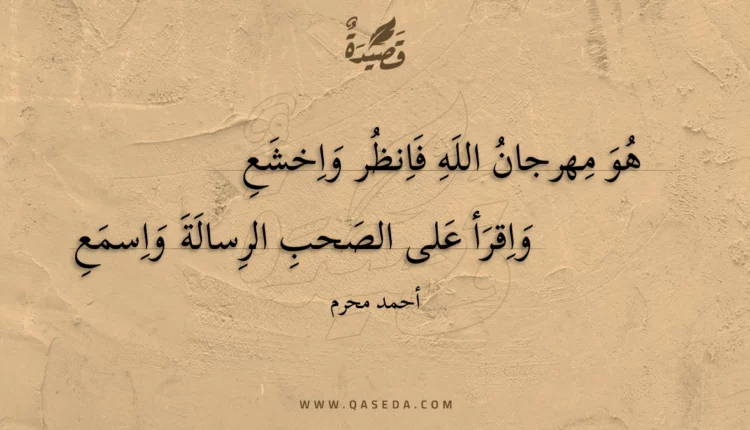 قَصِيدَةٌ
هُوَ مِهرجانُ اللَهِ فَاِنظُر وَاِخشَعِ
وَاِقرَأ عَلى الصَحبِ الرِسالَةَ وَاِسمَعِ
أحمد محرم
WWW.QASEDA.COM